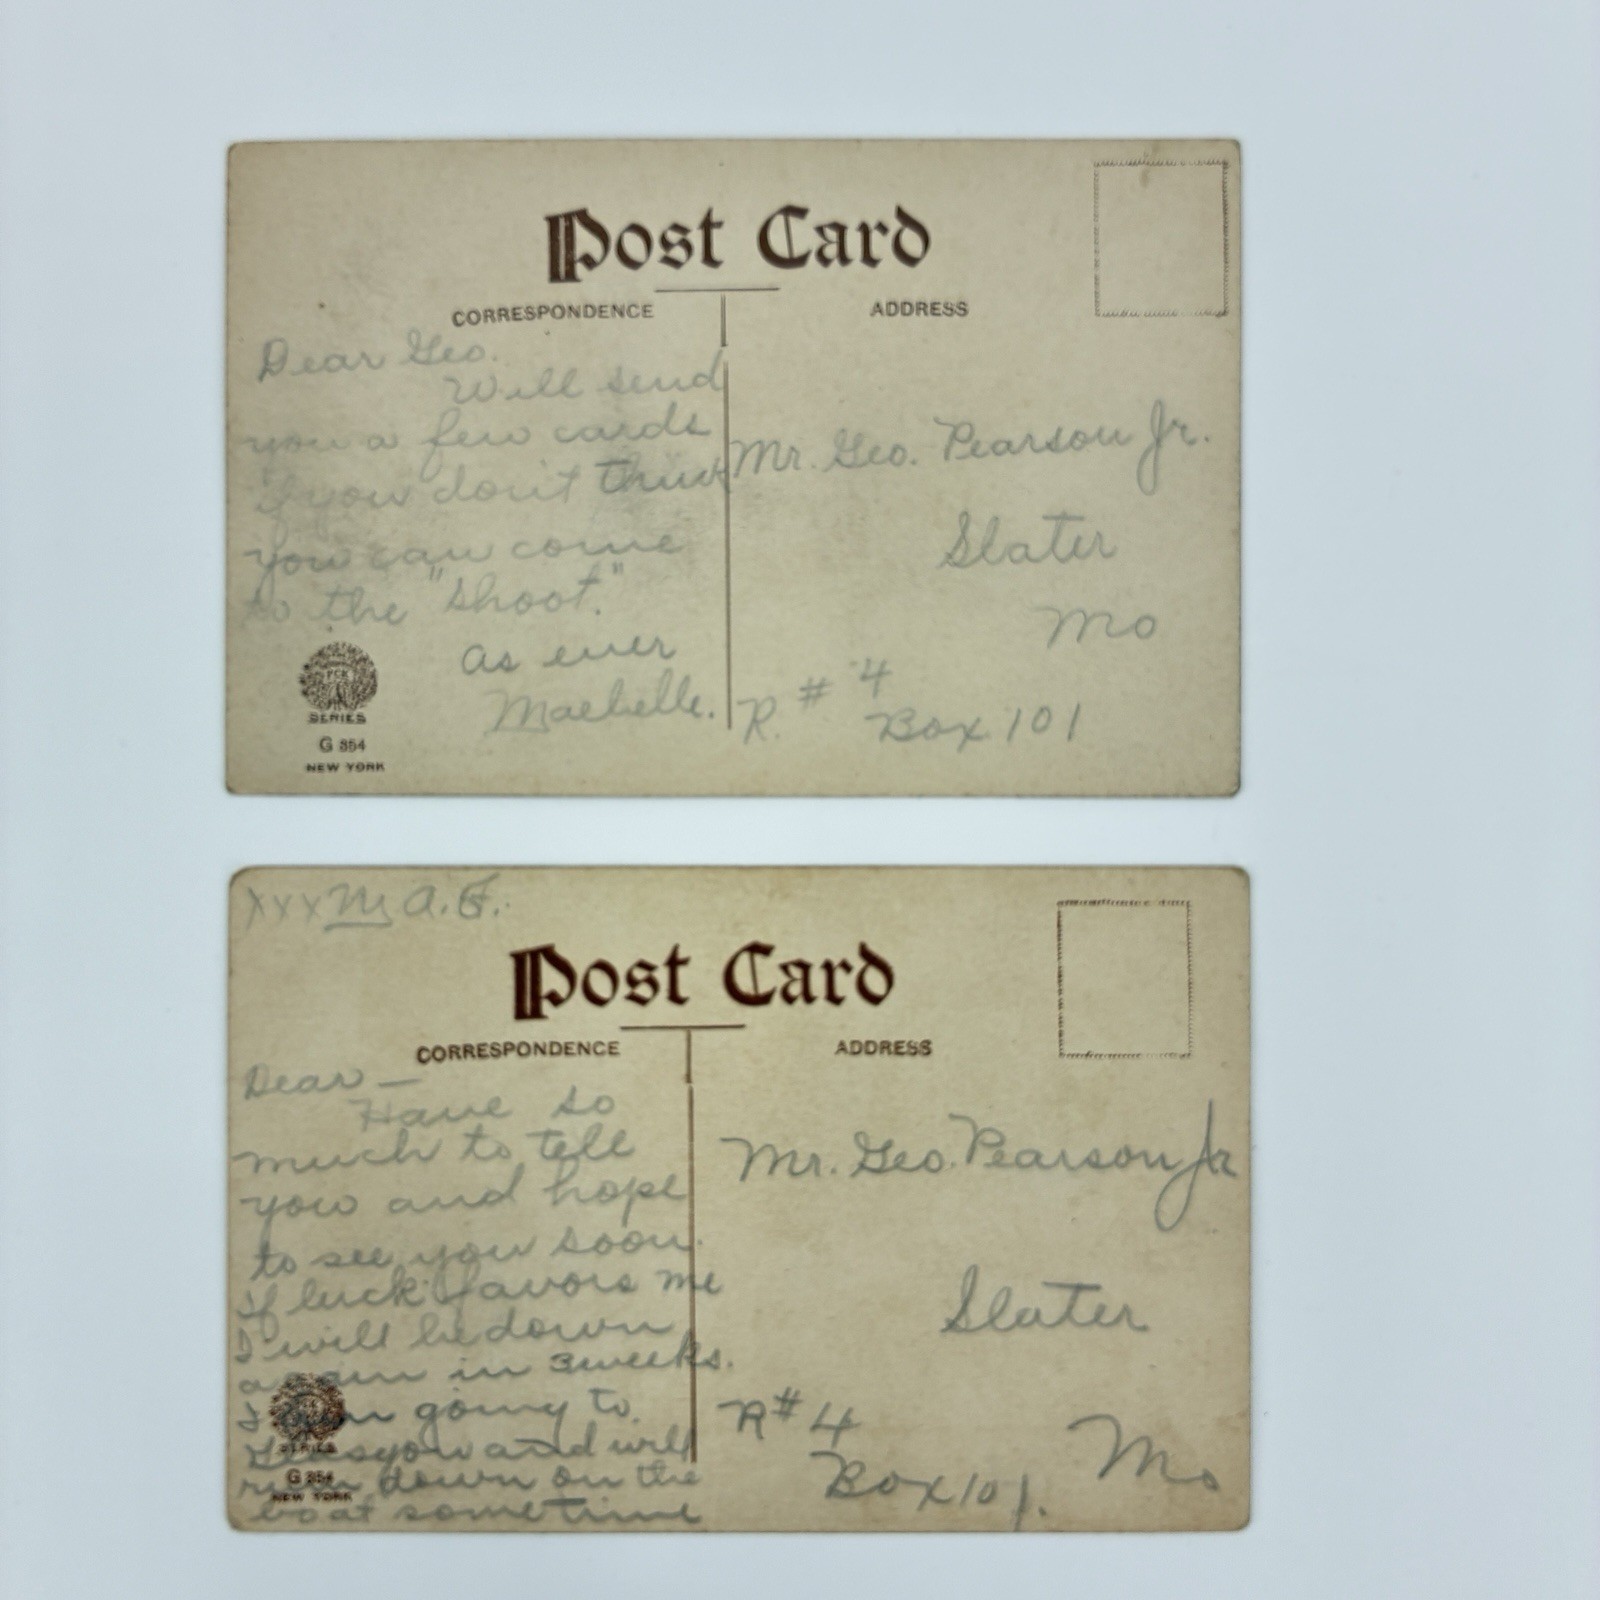 Post Card
CORRESPONDENCE
ADDRESS
Dear Geo.
Will send
you a few cards
if you don't think
you can come
to the "shoot."
as ever
Maebelle.
Mr. Geo. Pearson Jr.
Slater
Mo
R. # 4
Box 101
PCK
SERIES
G 354
NEW YORK
xxx M. A. F.
Post Card
CORRESPONDENCE
ADDRESS
Dear —
Have so
much to tell
you and hope
to see you soon.
If luck favors me
I will be down
again in 3 weeks.
I am going to
and will
run down on the
boat sometime
Mr. Geo. Pearson Jr
Slater
R # 4
Mo
Box 101.
SERIES
G 354
NEW YORK